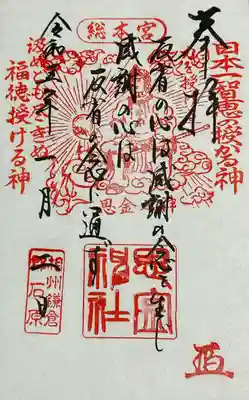 奉拝
日本一智慧の授かる神
総本宮
反省の心は感謝の念を生じ
感謝の心は
反省の念に通ず
汲めども尽きぬ
福徳授ける神
思金
思金神社
令和五年一月
二日
相州鎌倉
石原